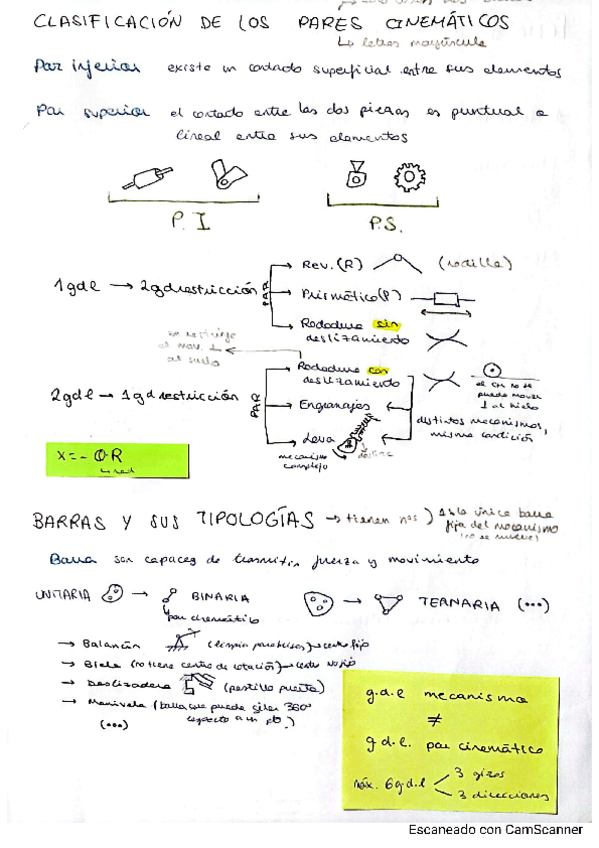 CLASIFICACIÓN DE LOS PARES CINEMÁTICOS
↳ letras mayúscula
Par inferior existe un contacto superficial entre sus elementos
Par superior el contacto entre las dos piezas es puntual o
lineal entre sus elementos
P.I P.S.
1gdl → 2gdrestricción
PAR
→ Rev.(R) (rodilla)
→ Prismático(P)
→ Rodadura sin
deslizamiento
se restringe
al mov. ⊥
al suelo
→ Rodadura con
deslizamiento
el CM no se
puede mover
⊥ al suelo
2gdl → 1gdrestricción
PAR
→ Engranajes
distintos mecanismos,
misma condición
→ Leva
mecanismo
complejo
x = - θ·R
↳ rad
BARRAS Y SUS TIPOLOGÍAS → tienen nos ) 1 es la única barra
fija del mecanismo
(no se mueve)
Barra son capaces de transmitir fuerza y movimiento
UNITARIA → BINARIA → TERNARIA (...)
par cinemático
→ Balancín (limpia parabrisas) → centro fijo
→ Biela (no tiene centro de rotación) → centro no fijo
→ Deslizadera (pestillo puerta)
→ Manivela (barra que puede girar 360º
respecto a un pto.)
(...)
g.d.l mecanismo
≠
g.d.l. par cinemático
máx. 6g.d.l
3 giros
3 direcciones
Escaneado con CamScanner